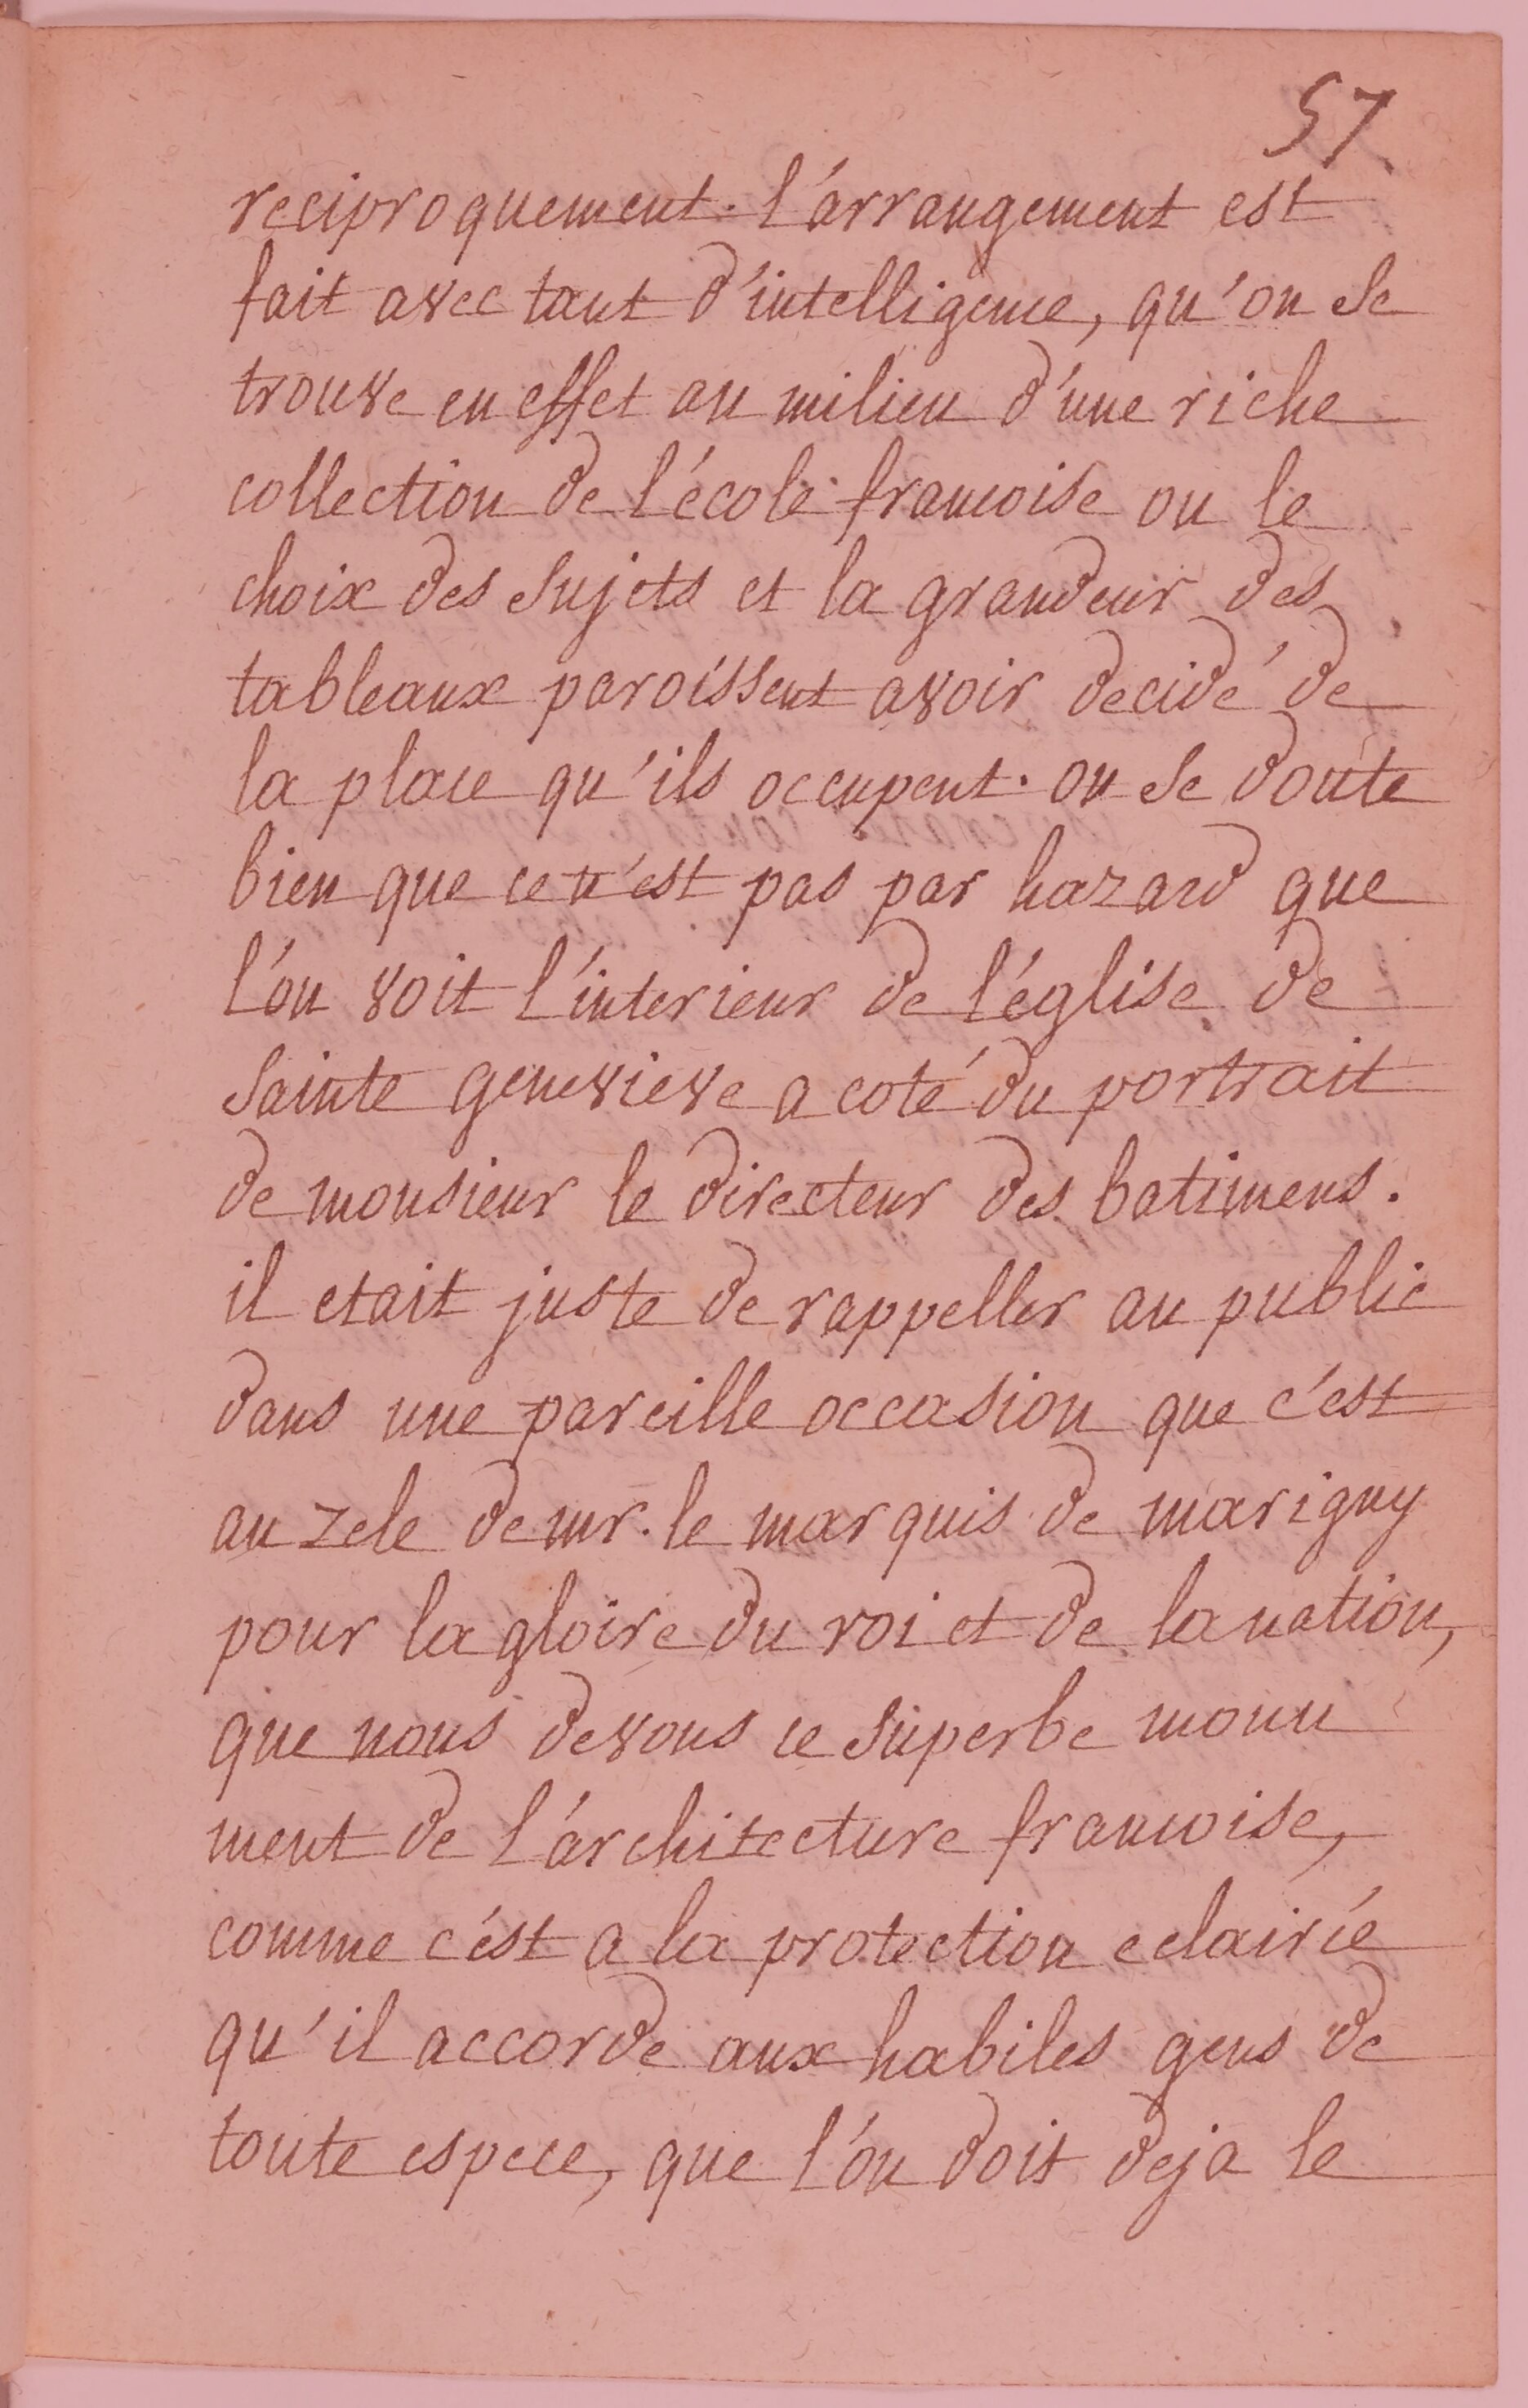 57
reciproquement. l'arrangement est
fait avec tant d'intelligence, qu'on se
trouve en effet au milieu d'une riche
collection de l'école francoise ou le
choix des sujets et la grandeur des
tableaux paroissent avoir decidé de
la place qu'ils occupent. on se doute
bien que ce n'est pas par hazard que
l'on voit l'interieur de l'église de
sainte genevieve a coté du portrait
de monsieur le directeur des batimens.
il etait juste de rappeller au public
dans une pareille occasion que c'est
au zele de mr. le marquis de marigny
pour la gloire du roi et de la nation,
que nous devons ce superbe monu
ment de l'architecture francoise,
comme c'est a la protection eclairée
qu'il accorde aux habiles gens de
toute espece, que l'on doit deja le